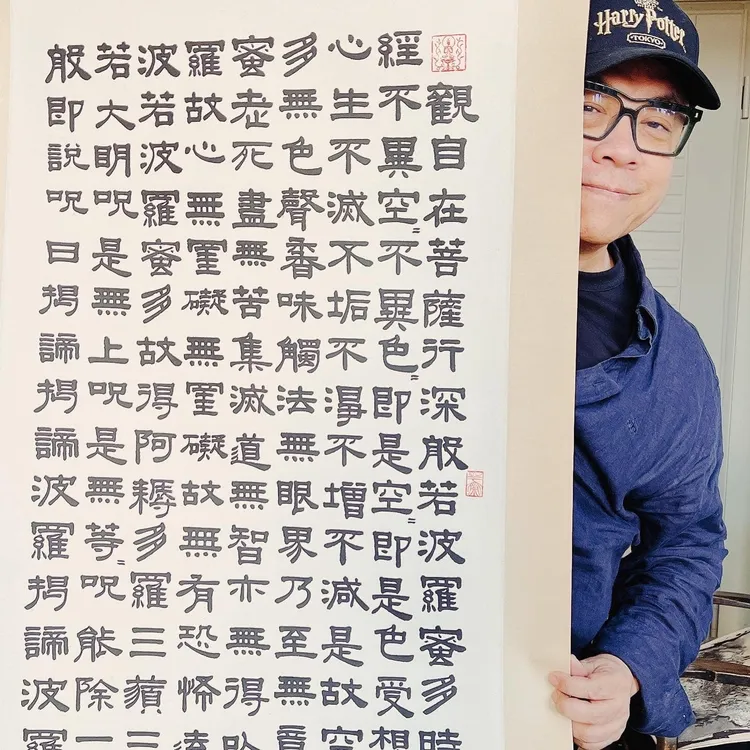 般若波羅蜜多心經
觀自在菩薩行深般若波羅蜜多時
不異空〻不異色〻即是空〻即是色受想
生不滅不垢不淨不增不減是故空
無色聲香味觸法無眼界乃至無意
老死盡無苦集滅道無智亦無得以
故心無罣礙無罣礙故無有恐怖遠
若波羅蜜多故得阿耨多羅三藐三
大明呪是無上呪是無等〻呪能除一
即說呪曰揭諦揭諦波羅揭諦波羅
Harry Potter
TOKYO